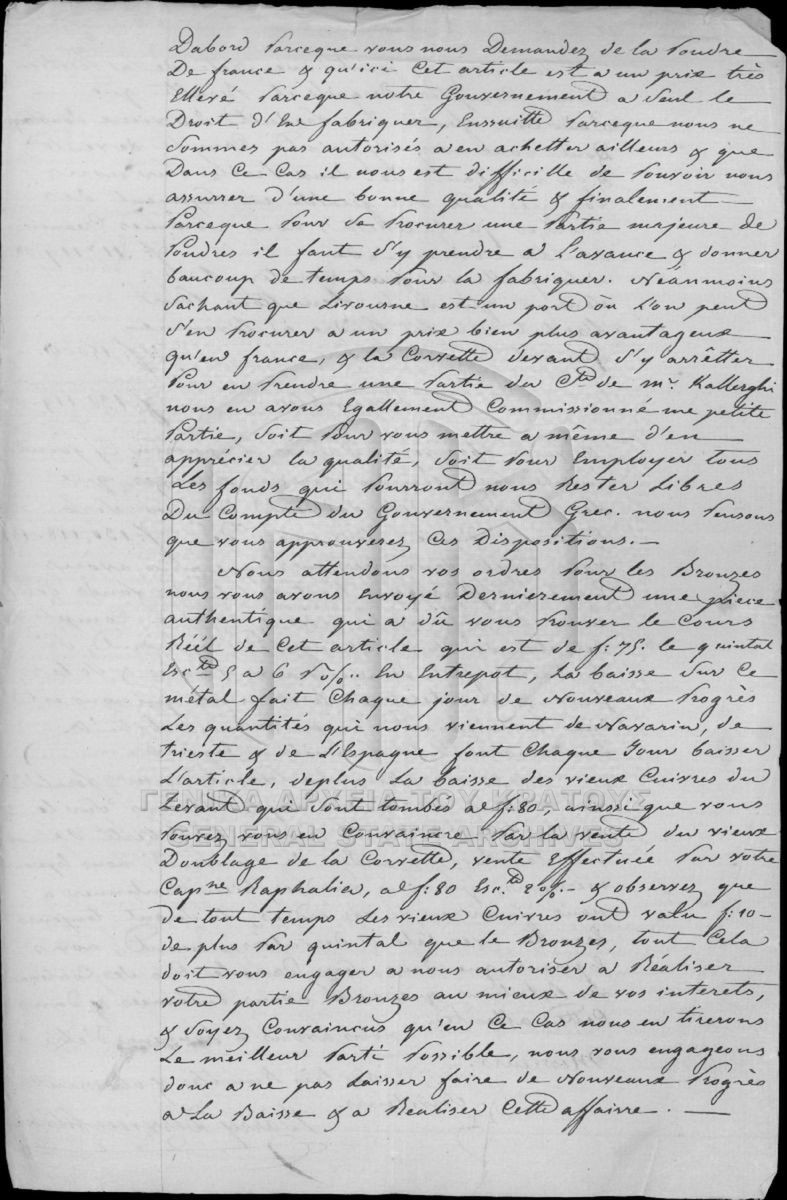 Dabord Parceque vous nous Demandez de la Poudre
De france & qu'ici Cet article est a un prix très
Ellevé Parceque notre Gouvernement a Seul le
Droit d'En fabriquer, Enssuitte Parceque nous ne
Sommes pas autorisés a en achetter ailleurs & que
Dans Ce Cas il nous est difficille de Pouvoir nous
assurrer d'une bonne qualité & finalement
Parceque Pour Se Procurer une Partie majeure de
Poudres il faut S'y prendre a L'avance & donner
baucoup de temps Pour la fabriquer. Néanmoins
Sachant que Livourne est un port où L'on peut
S'en Procurer a un prix bien plus avantageux
qu'en france, & la Corvette devant S'y arrêtter
Pour en Prendre une Partie du Cte de Mr. Kallerghi
nous en avons Egallement Commissionné une petite
Partie, Soit Pour vous mettre a même d'en
apprécier la qualité, Soit Pour Employer tous
Les fonds qui Pourront nous Rester Libres
Du Compte du Gouvernement Grec. nous Pensons
que vous approuverez Ces Dispositions. —
Nous attendons vos ordres Pour les Bronzes
nous vous avons Envoyé Dernierement une piece
authentique qui a dû vous Prouver le Cours
Réél de Cet article qui est de f: 75. le quintal
Escte 5 a 6 P%. En Entrepot, La baisse Sur Ce
métal fait Chaque jour de Nouveaux Progrès
Les quantités qui nous viennent de Navarin, de
Trieste & de L'Espagne font Chaque Jour baisser
L'article, deplus La baisse des vieux Cuivres du
Levant qui Sont tombés a f: 80, ainsi que vous
Pouvez vous en Convaincre Par la vente du vieux
Doublage de la Corvette, vente Effectuée Par votre
Capne Raphalia, a f: 80 Escte 2 %. — & observez que
de tout temps Les vieux Cuivres ont valu f: 10 —
de plus Par quintal que le Bronzes, tout Cela
doit vous engager a nous autoriser a Réaliser
votre partie Bronzes au mieux de vos interets,
& Soyez Convaincus qu'en Ce Cas nous en tirerons
Le meilleur Parti Possible, nous vous engageons
donc a ne pas Laisser faire de Nouveaux Progrès
a La Baisse & a Realiser Cette affairre. —
ΓΕΝΙΚΑ ΑΡΧΕΙΑ ΤΟΥ ΚΡΑΤΟΥΣ
GENERAL STATE ARCHIVES